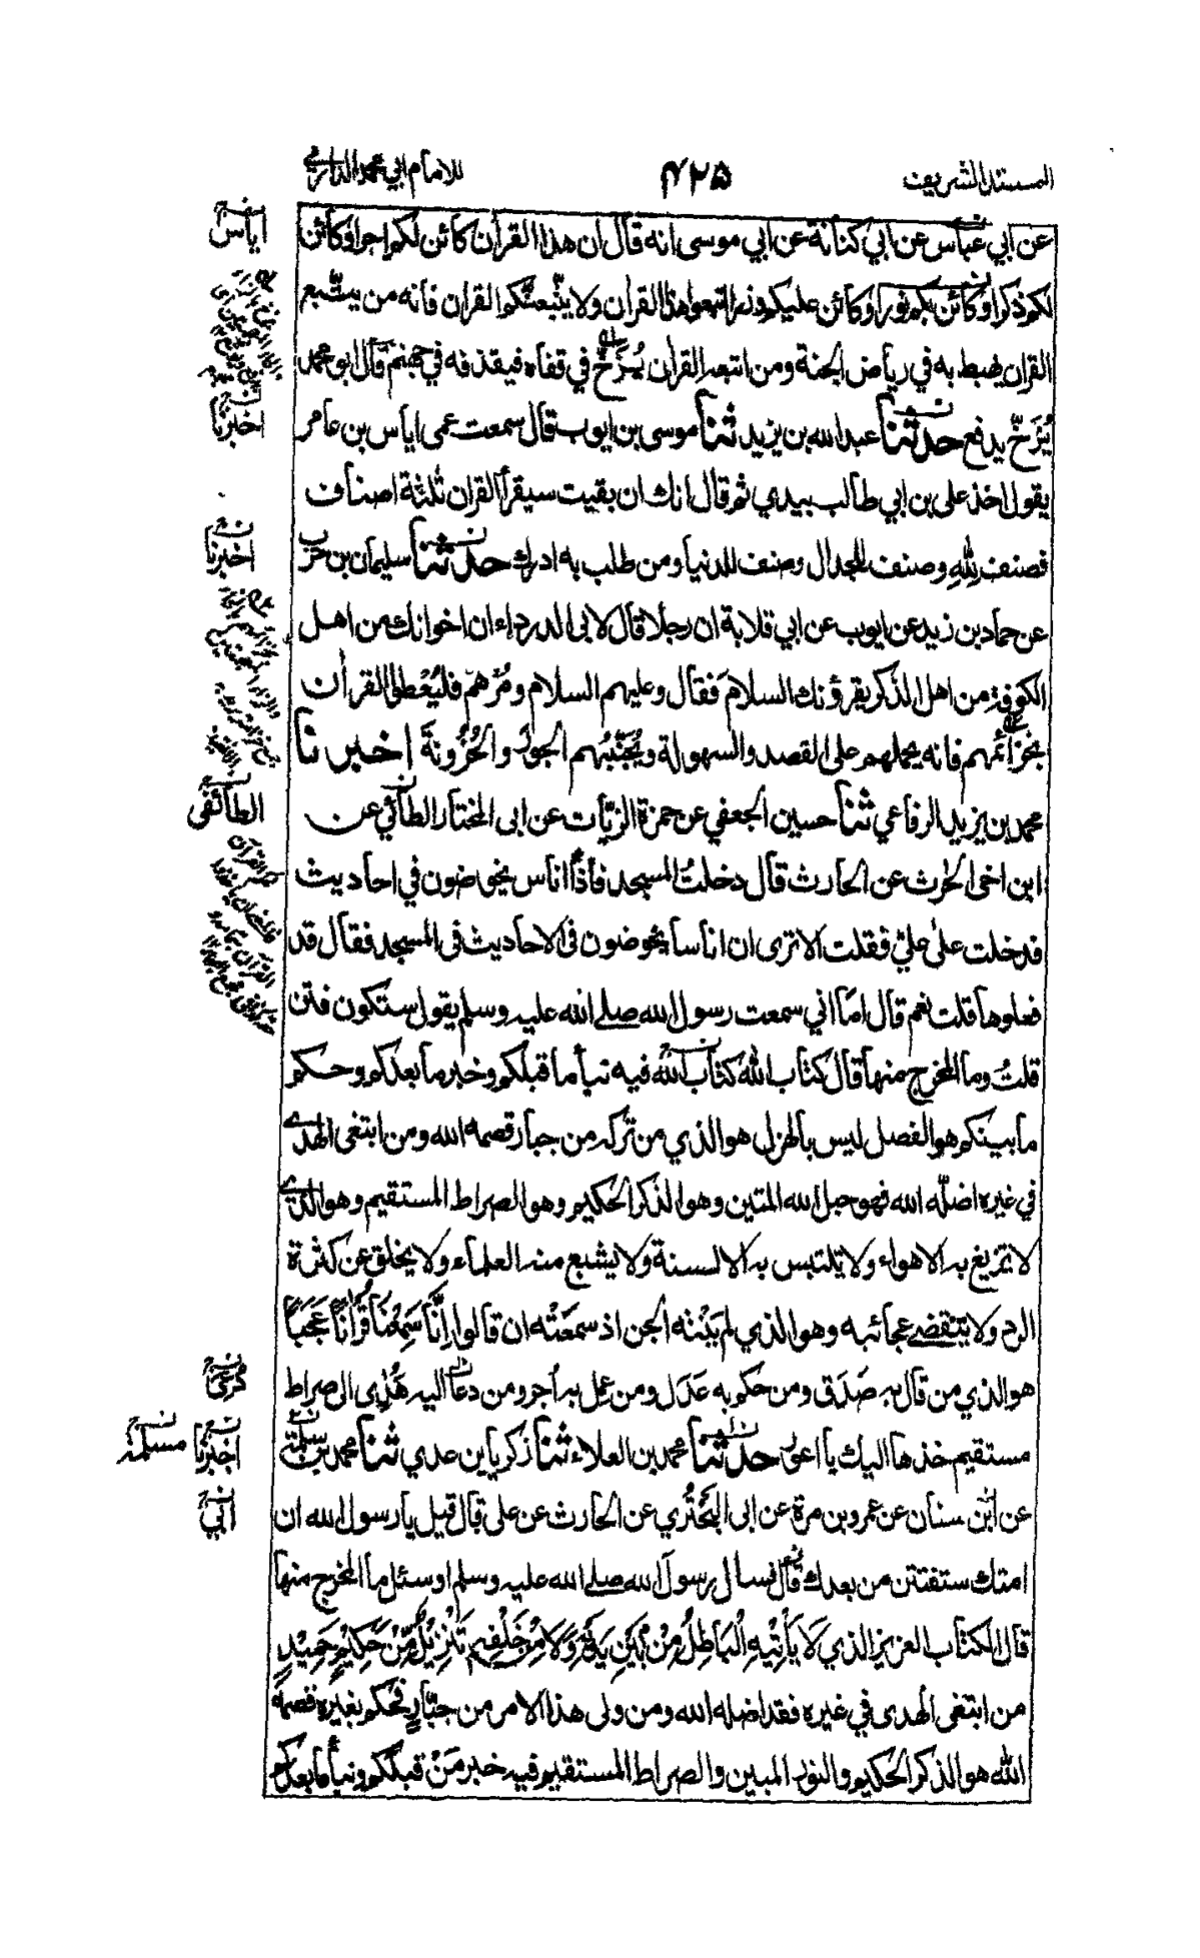 المسند الشريف
٤٢٥
للامام ابي محمد الدارمي
عن ابي عباس عن ابي كنانة عن ابي موسى انه قال ان هذا القرآن كائن لكم اجرا وكائن
لكم ذكرا وكائن بكم نورا وكائن عليكم وزرا اتبعوا هذا القرآن ولا يتبعنكم القرآن فانه من يتبع
القرآن يهبط به في رياض الجنة ومن اتبعه القرآن يُزَخّ في قفاه فيقذفه في جهنم قال ابو محمد
يُزَخّ يدفع حدثنا عبد الله بن يزيد ثنا موسى بن ايوب قال سمعت عمى اياس بن عامر
يقول اخذ على بن ابي طالب بيدي ثم قال انك ان بقيت سيقرأ القرآن ثلثة اصناف
فصنف للهِ وصنف للجدال وصنف للدنيا ومن طلب به ادرك حدثنا سليمان بن حرب
عن حماد بن زيد عن ايوب عن ابي قلابة ان رجلا قال لابى الدرداء ان اخوانك من اهل
الكوفة من اهل الذكر يقرؤنك السلام فقال وعليهم السلام ومُرْهم فليُعْطوا القرآن
بخزائمهم فانه يحملهم على القصد والسهولة ويُجَنِّبُهم الجور والحُزُونةَ اخبرنا
محمد بن يزيد الرفاعي ثنا حسين الجعفي عن حمزة الزيّات عن ابى المختار الطائي عن
ابن اخى الحٰرث عن الحارث قال دخلتُ المسجد فاذا اناس يخوضون في احاديث
فدخلت على عليّ فقلت الا ترى ان اناسا يخوضون فى الاحاديث فى المسجد فقال قد
فعلوها قلت نعم قال امّا اني سمعت رسول الله صلے الله عليه وسلم يقول ستكون فتن
قلتُ وما المخرج منها قال كتاب الله كتاب الله فيه نبأ ما قبلكم وخبر ما بعدكم وحكم
ما بينكم هو الفصل ليس بالهزل هو الذي من تركه من جبار قصمه الله ومن ابتغى الهدے
في غيره اضلّه الله فهو حبل الله المتين وهو الذكر الحكيم وهو الصراط المستقيم وهو الذے
لا تزيغ به الاهواء ولا تلتبس به الالسنة ولا يشبع منه العلماء ولا يخلق عن كثرة
الرد ولا تنقضے عجائبه وهو الذي لم يَنْته الجن اذ سمعَتْه ان قالوا اِنَّا سَمِعْنَا قُرْاٰنًا عَجَبًا
هو الذي من قال به صَدَق ومن حكم به عَدَل ومن عمل به اُجر ومن دعا اليه هُدِى الى صراط
مستقيم خذها اليك يا اعور حدثنا محمد بن العلاء ثنا زكريا بن عدي ثنا محمد بن سلمة
عن ابن سنان عن عمرو بن مرة عن ابى البَخْتَري عن الحارث عن على قال قيل يا رسول الله ان
امتك ستفتتن من بعدك قال فسال رسول الله صلے الله عليه وسلم او سئل ما المخرج منها
قال الكتاب العزيز الذي لَا يَأْتِيْهِ الْبَاطِلُ مِنْ بَيْنِ يَدَيْهِ وَلَا مِنْ خَلْفِهٖ تَنْزِيْلٌ مِّنْ حَكِيْمٍ حَمِيْدٍ
من ابتغى الهدى في غيره فقد اضله الله ومن ولى هذا الامر من جبّارٍ فحكم بغيره قصمه
الله هو الذكر الحكيم والنور المبين والصراط المستقيم فيه خبر مَنْ قبلكم ونبأ ما بعدكم
اياس
اخبرنا
اخبرنا
الطائفى
اخبرنا
مسلمة
ابي